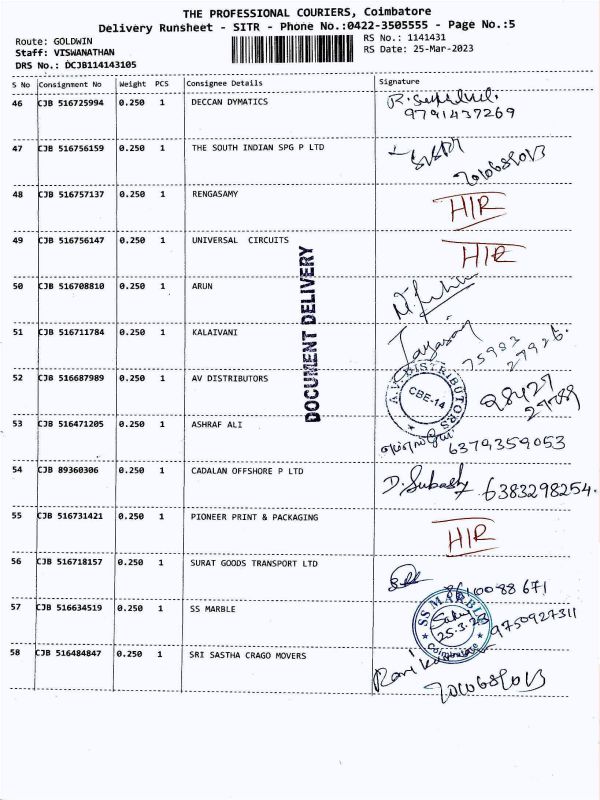 THE PROFESSIONAL COURIERS, Coimbatore
Delivery Runsheet - SITR - Phone No.:0422-3505555 - Page No.:5
Route: GOLDWIN
RS No.: 1141431
Staff: VISWANATHAN
RS Date: 25-Mar-2023
DRS No.: DCJB114143105
S No Consignment No Weight PCS Consignee Details Signature
46 CJB 516725994 0.250 1 DECCAN DYMATICS
9791437269
47 CJB 516756159 0.250 1 THE SOUTH INDIAN SPG P LTD
7010689013
48 CJB 516757137 0.250 1 RENGASAMY HIR
49 CJB 516756147 0.250 1 UNIVERSAL CIRCUITS HIR
50 CJB 516708810 0.250 1 ARUN
DOCUMENT DELIVERY
51 CJB 516711784 0.250 1 KALAIVANI
75993
27926.
52 CJB 516687989 0.250 1 AV DISTRIBUTORS
A.V. DISTRIBUTORS
CBE-14
53 CJB 516471205 0.250 1 ASHRAF ALI
6379359053
54 CJB 89360306 0.250 1 CADALAN OFFSHORE P LTD
D. Subash 6383298254.
55 CJB 516731421 0.250 1 PIONEER PRINT & PACKAGING HIR
56 CJB 516718157 0.250 1 SURAT GOODS TRANSPORT LTD
8610088671
57 CJB 516634519 0.250 1 SS MARBLE
SS MARBLE
25-3-23
Coimbatore
9750927311
58 CJB 516484847 0.250 1 SRI SASTHA CRAGO MOVERS
7010689013